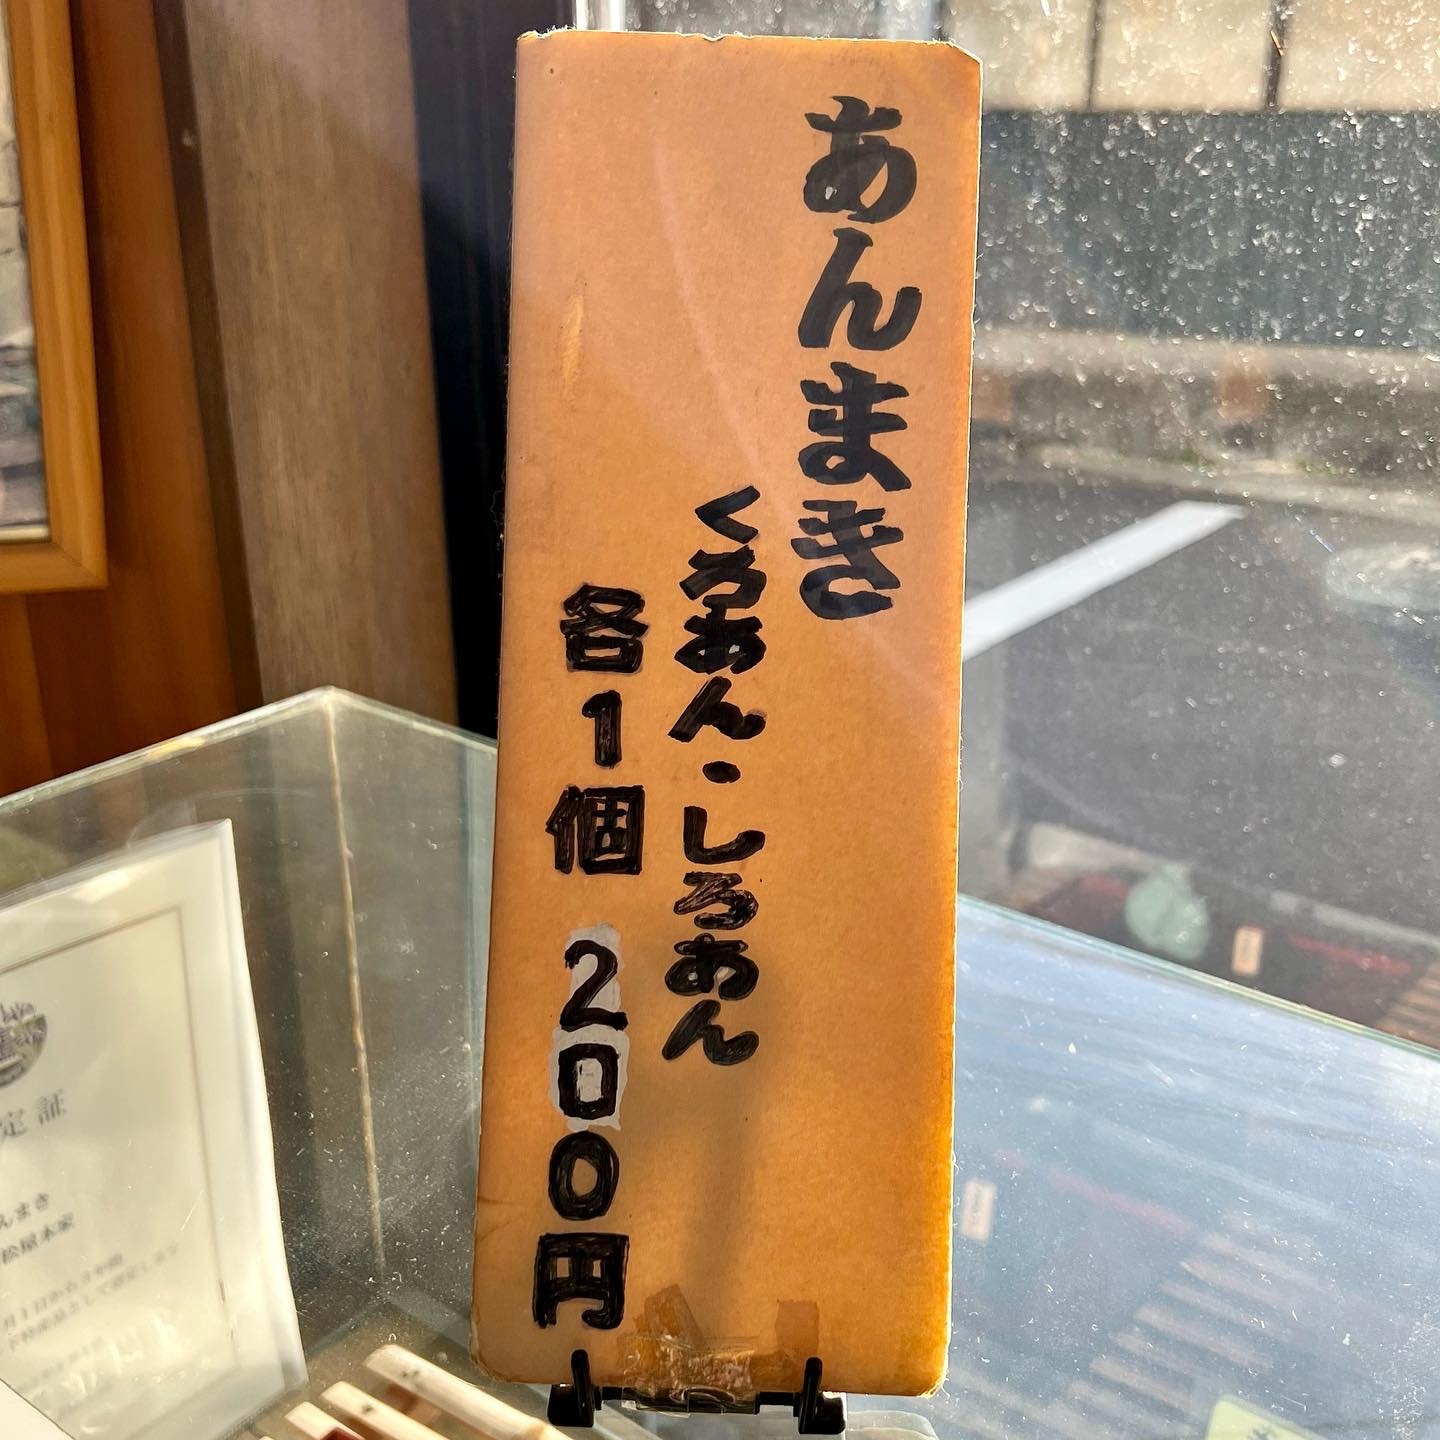 あんまき
くろあん・しろあん
各1個 200円
定証
んまき
松屋本家